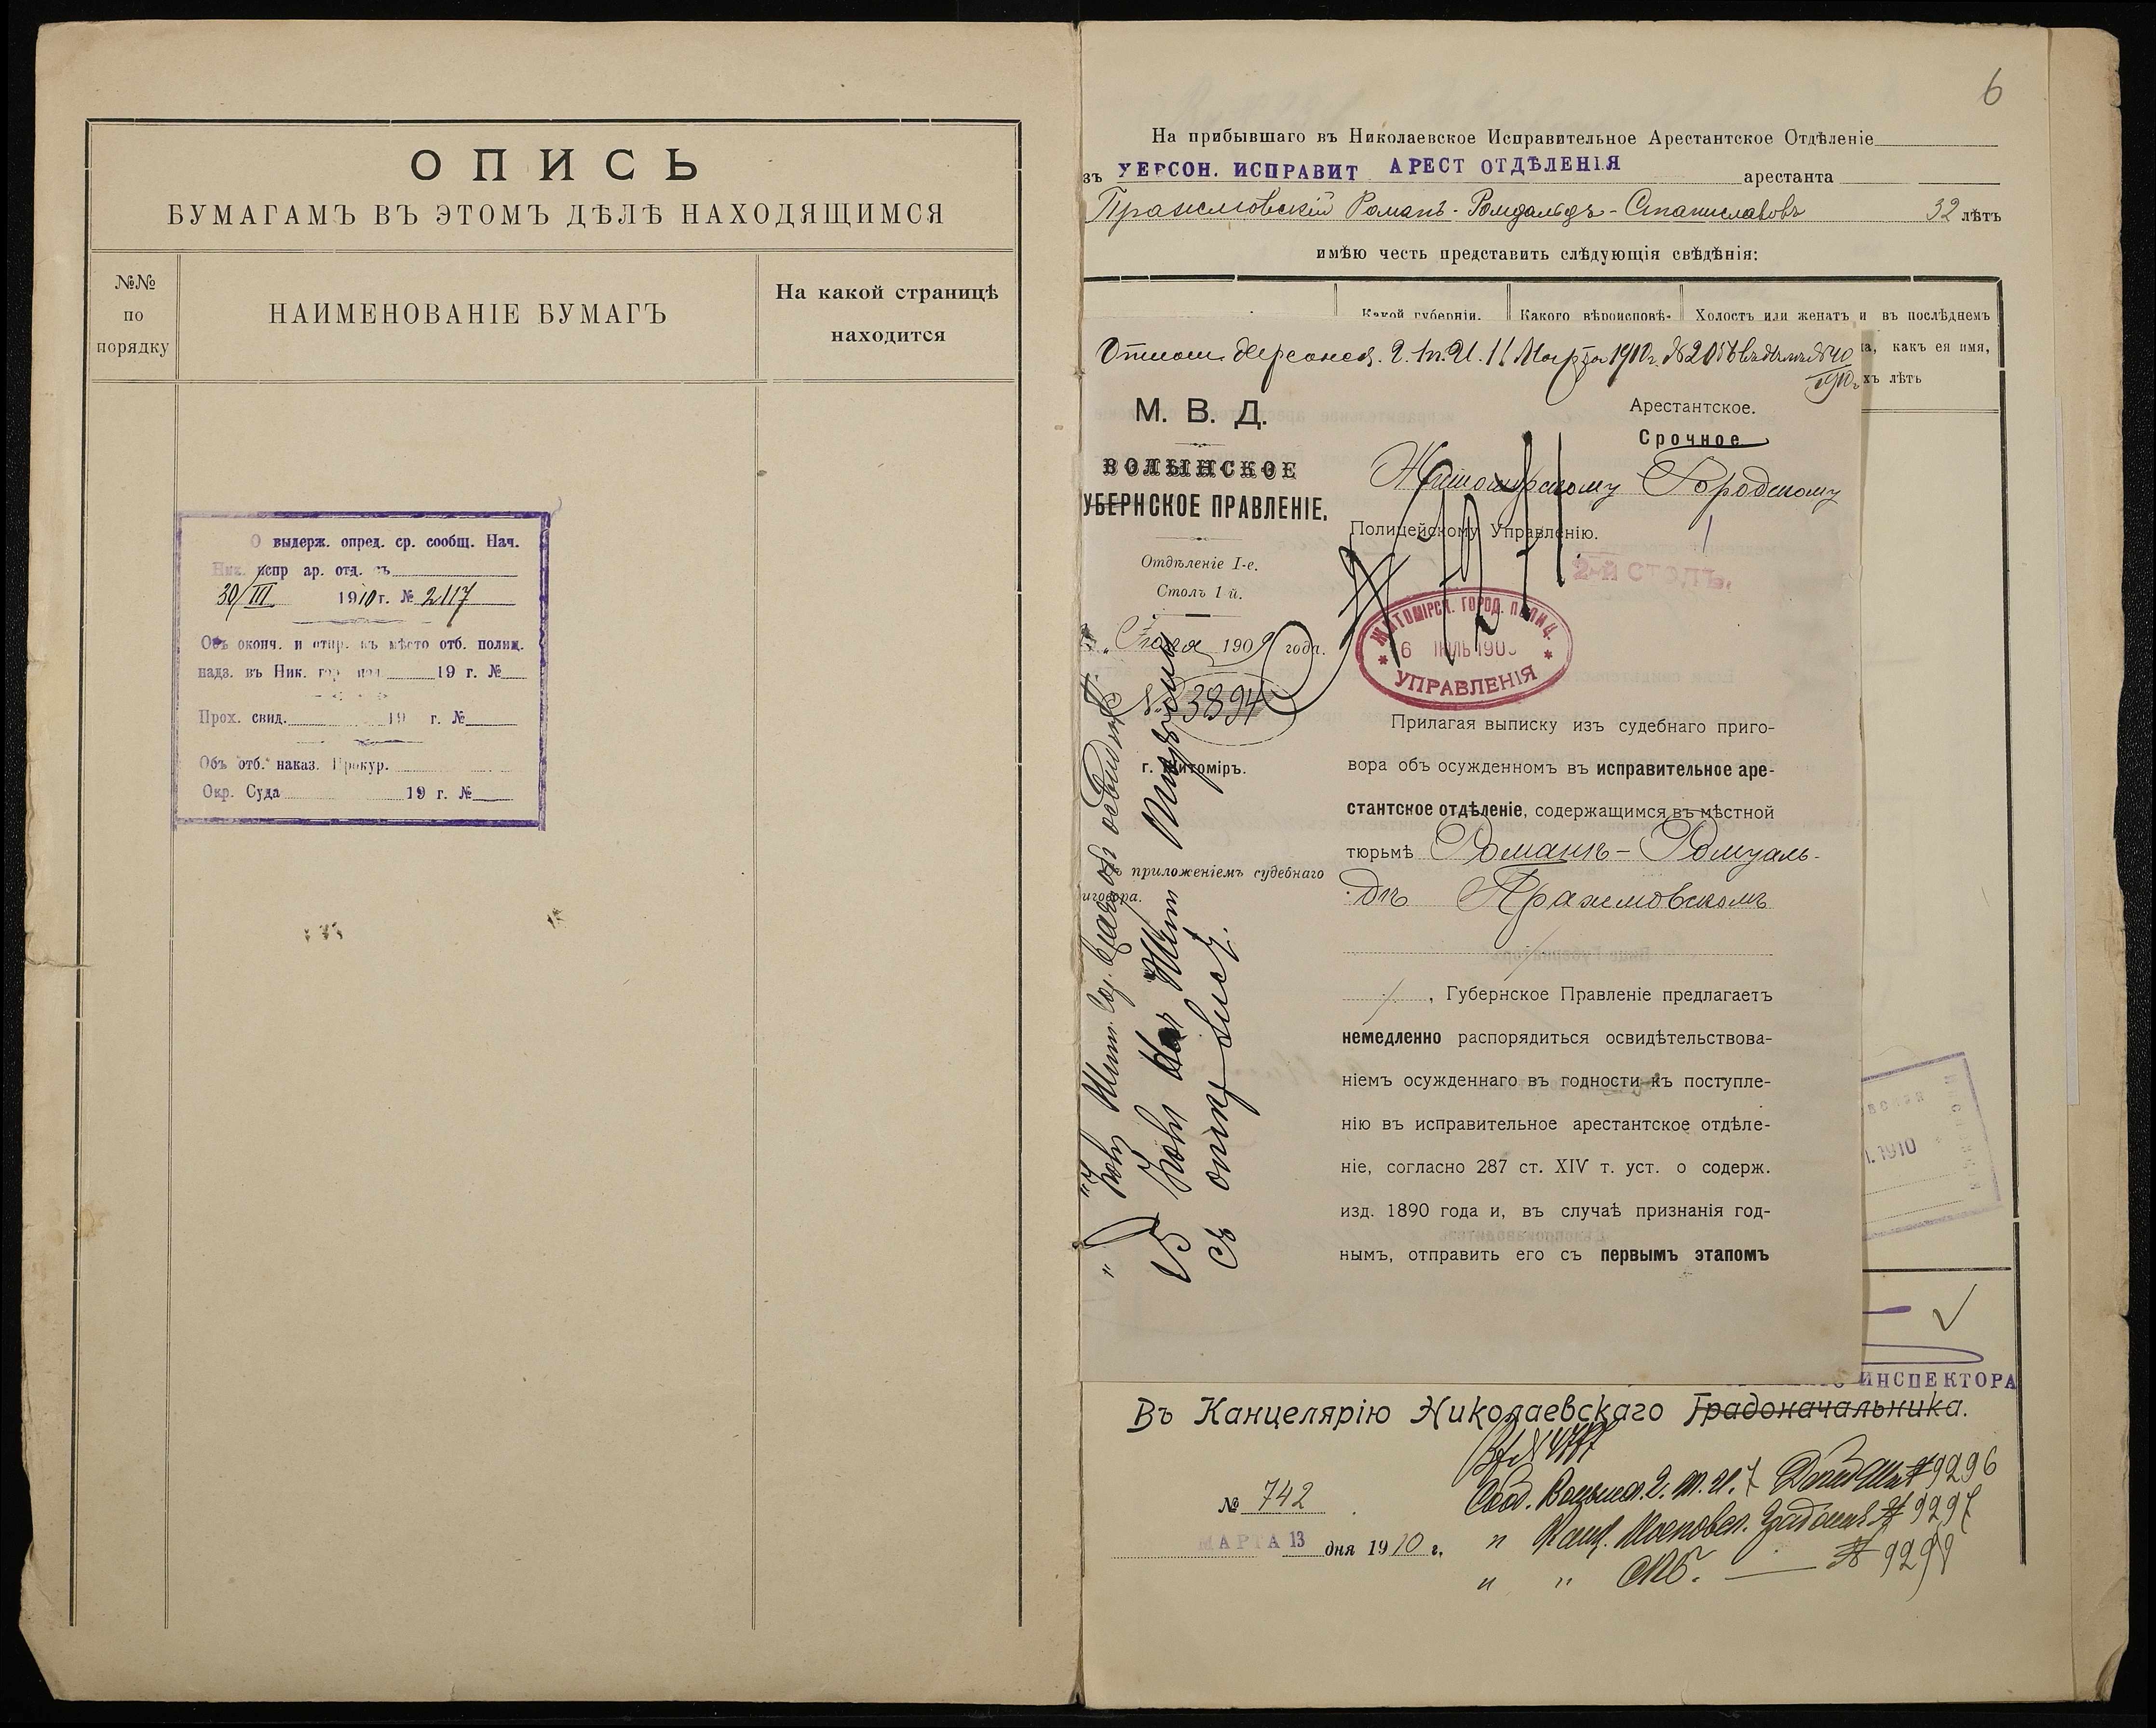 ОПИСЬ
БУМАГАМЪ ВЪ ЭТОМЪ ДѢЛѢ НАХОДЯЩИМСЯ
№№
по
порядку
НАИМЕНОВАНІЕ БУМАГЪ
На какой страницѣ
находится
О выдерж. опред. ср. сообщ. Нач.
Ник. испр ар. отд. съ
30/III 1910 г. № 2117
Объ оконч. и отпр. въ мѣсто отб. полиц.
надз. въ Ник. гор пол. 19 г. №
Прох. свид. 19 г. №
Объ отб. наказ. Прокур.
Окр. Суда 19 г. №
6
На прибывшаго въ Николаевское Исправительное Арестантское Отдѣленіе
зъ ХЕРСОН. ИСПРАВИТ АРЕСТ ОТДѢЛЕНІЯ арестанта
Пражмовскій Романъ-Ромуальдъ-Станиславовъ 32 лѣтъ
имѣю честь представить слѣдующія свѣдѣнія:
Какой губерніи, Какого вѣроисповѣ- Холостъ или женатъ и въ послѣднемъ
а, какъ ея имя,
хъ лѣтъ
Херсонск. г. т. И. 11 Марта 1910 г. № 2056 № 40
1910 г.
М. В. Д.
ВОЛЫНСКОЕ
УБЕРНСКОЕ ПРАВЛЕНІЕ.
Отдѣленіе I-е.
Столъ 1-й.
Іюля 1909 года.
№ 3894
г. Житоміръ.
приложеніемъ судебнаго
иговора.
Арестантское.
Срочное
Житомирскому Городскому
Полицейскому Управленію.
2-й СТОЛЪ.
ЖИТОМІРСК. ГОРОД. ПОЛИЦ.
6 ІЮЛЬ 190
УПРАВЛЕНІЯ
Прилагая выписку изъ судебнаго приго-
вора объ осужденномъ въ исправительное аре-
стантское отдѣленіе, содержащимся въ мѣстной
тюрьмѣ Романъ-Ромуаль-
дъ Пражмовскомъ
, Губернское Правленіе предлагаетъ
немедленно распорядиться освидѣтельствова-
ніемъ осужденнаго въ годности къ поступле-
нію въ исправительное арестантское отдѣле-
ніе, согласно 287 ст. XIV т. уст. о содерж.
изд. 1890 года и, въ случаѣ признанія год-
нымъ, отправить его съ первымъ этапомъ
1910
ИНСПЕКТОРА
Въ Канцелярію Николаевскаго Градоначальника.
№ 742
МАРТА 13 дня 1910 г.
Сооб. Волынск. г. т. И. № 9296
" Канц. Московск. Градонач № 9297
" " СПБ. № 9298